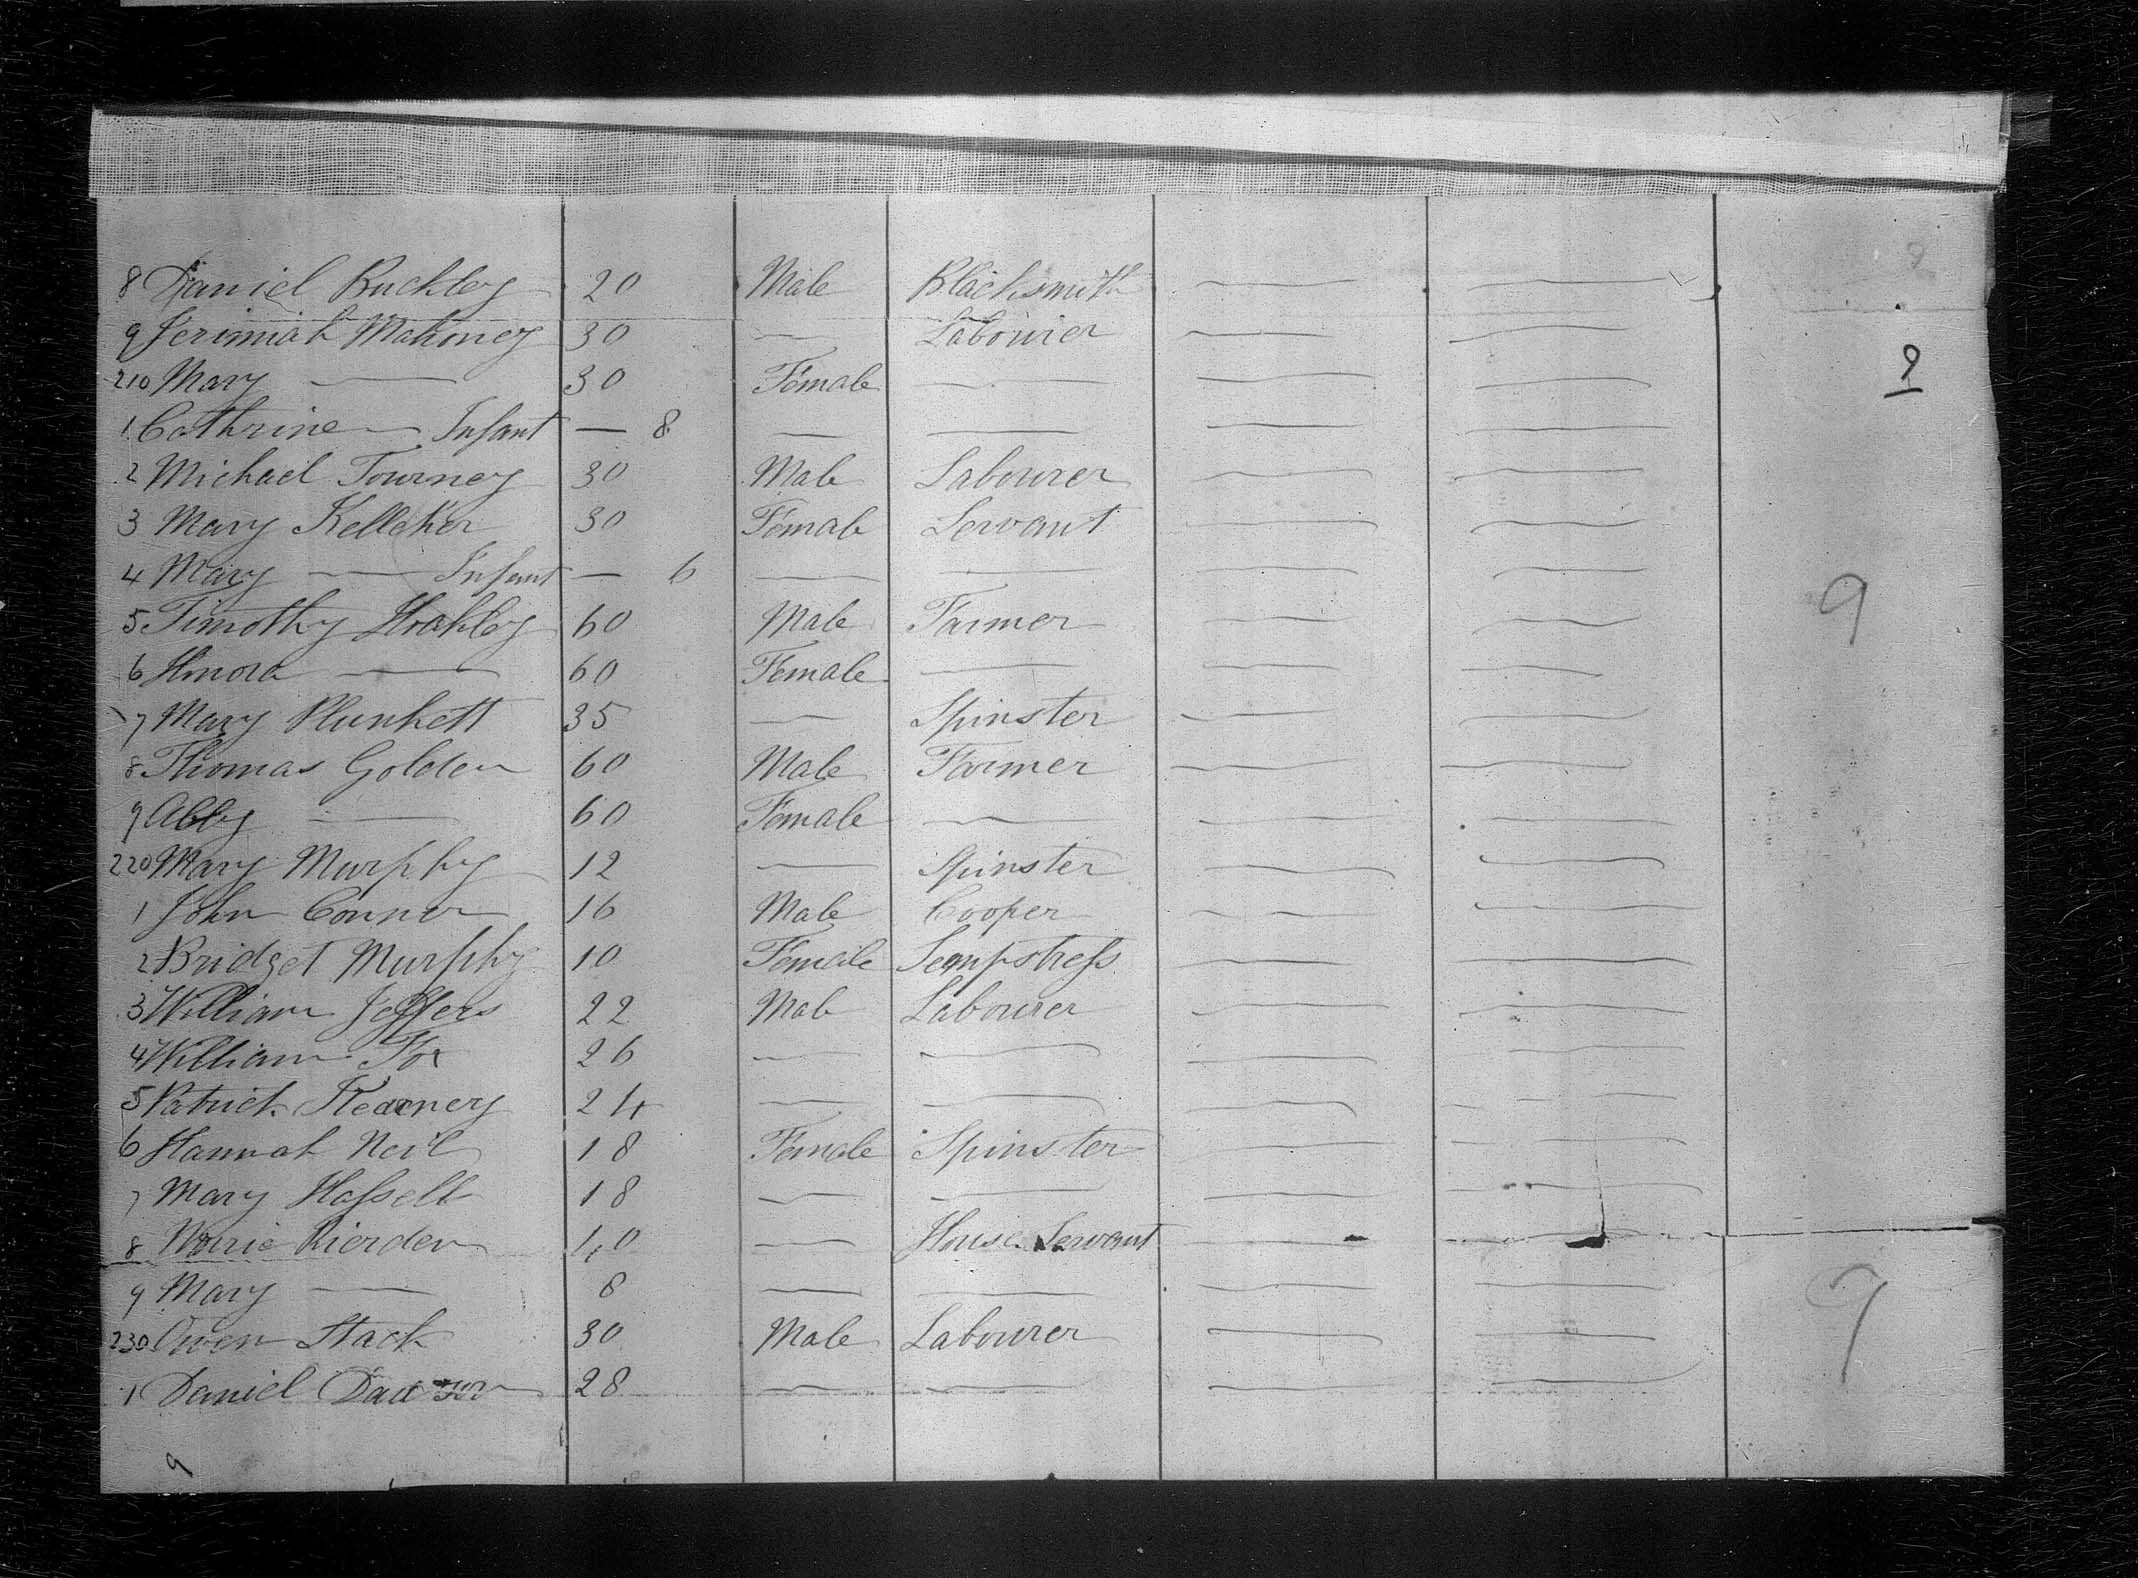 8 Daniel Buckley 20 Male Blacksmith — —
9 Jerimiah Mahoney 30 — Labourer — —
9
210 Mary — 30 Female — — —
1 Cathrine — Infant — 8 — — — —
2 Michael Tourney 30 Male Labourer — —
3 Mary Kelleher 30 Female Servant — —
4 Mary — Infant — 6 — — — —
9
5 Timothy 60 Male Farmer — —
6 Hnora — 60 Female — — —
7 Mary Plunkett 35 — Spinster — —
8 Thomas Golden 60 Male Farmer — —
9 Abby — 60 Female — — —
220 Mary Murphy 12 — Spinster — —
1 John Connor 16 Male Cooper — —
2 Bridget Murphy 10 Female Sempstress — —
3 William Jeffers 22 Male Labourer — —
4 William Fox 26 — — — —
5 Patrick 24 — — — —
6 Hannah Neil 18 Female Spinster — —
7 Mary Hassell 18 — — — —
8 Rierden 40 — House Servant — —
9 Mary — 8 — — — —
9
230 Owen Stack 30 Male Labourer — —
1 Daniel 28 — — — —
9